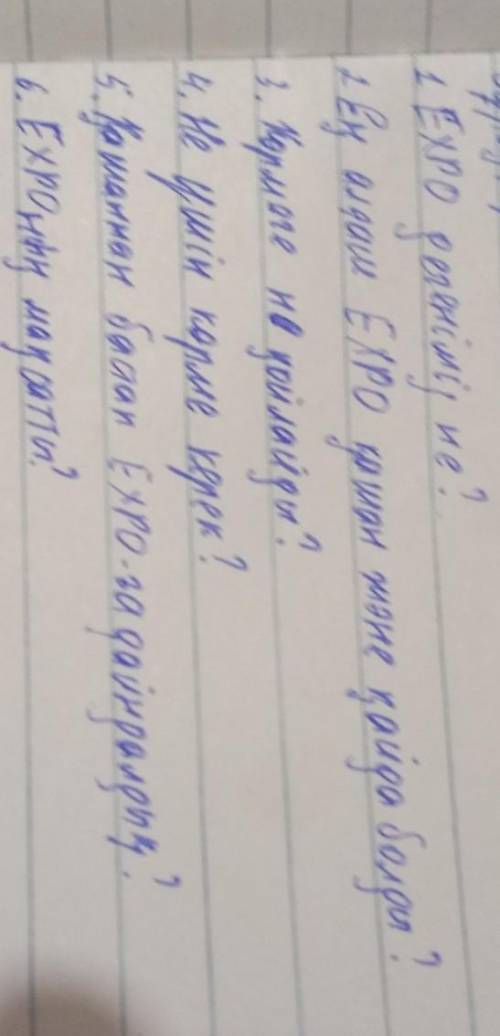 1. EXPO дегеніміз не?
1. Ең алғаш EXPO қашан және қайда болды?
3. Көрмеге не қойылады?
4. Не үшін көрме керек?
5. Қашаннан бапап EXPO-ға дайындалдың?
6. EXPOның мақсаты?